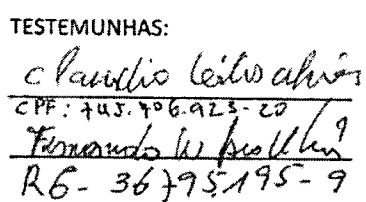 TESTEMUNHAS:
Claudio
CPF: 745.706.923-20
Fernando W
RG - 36795195-9